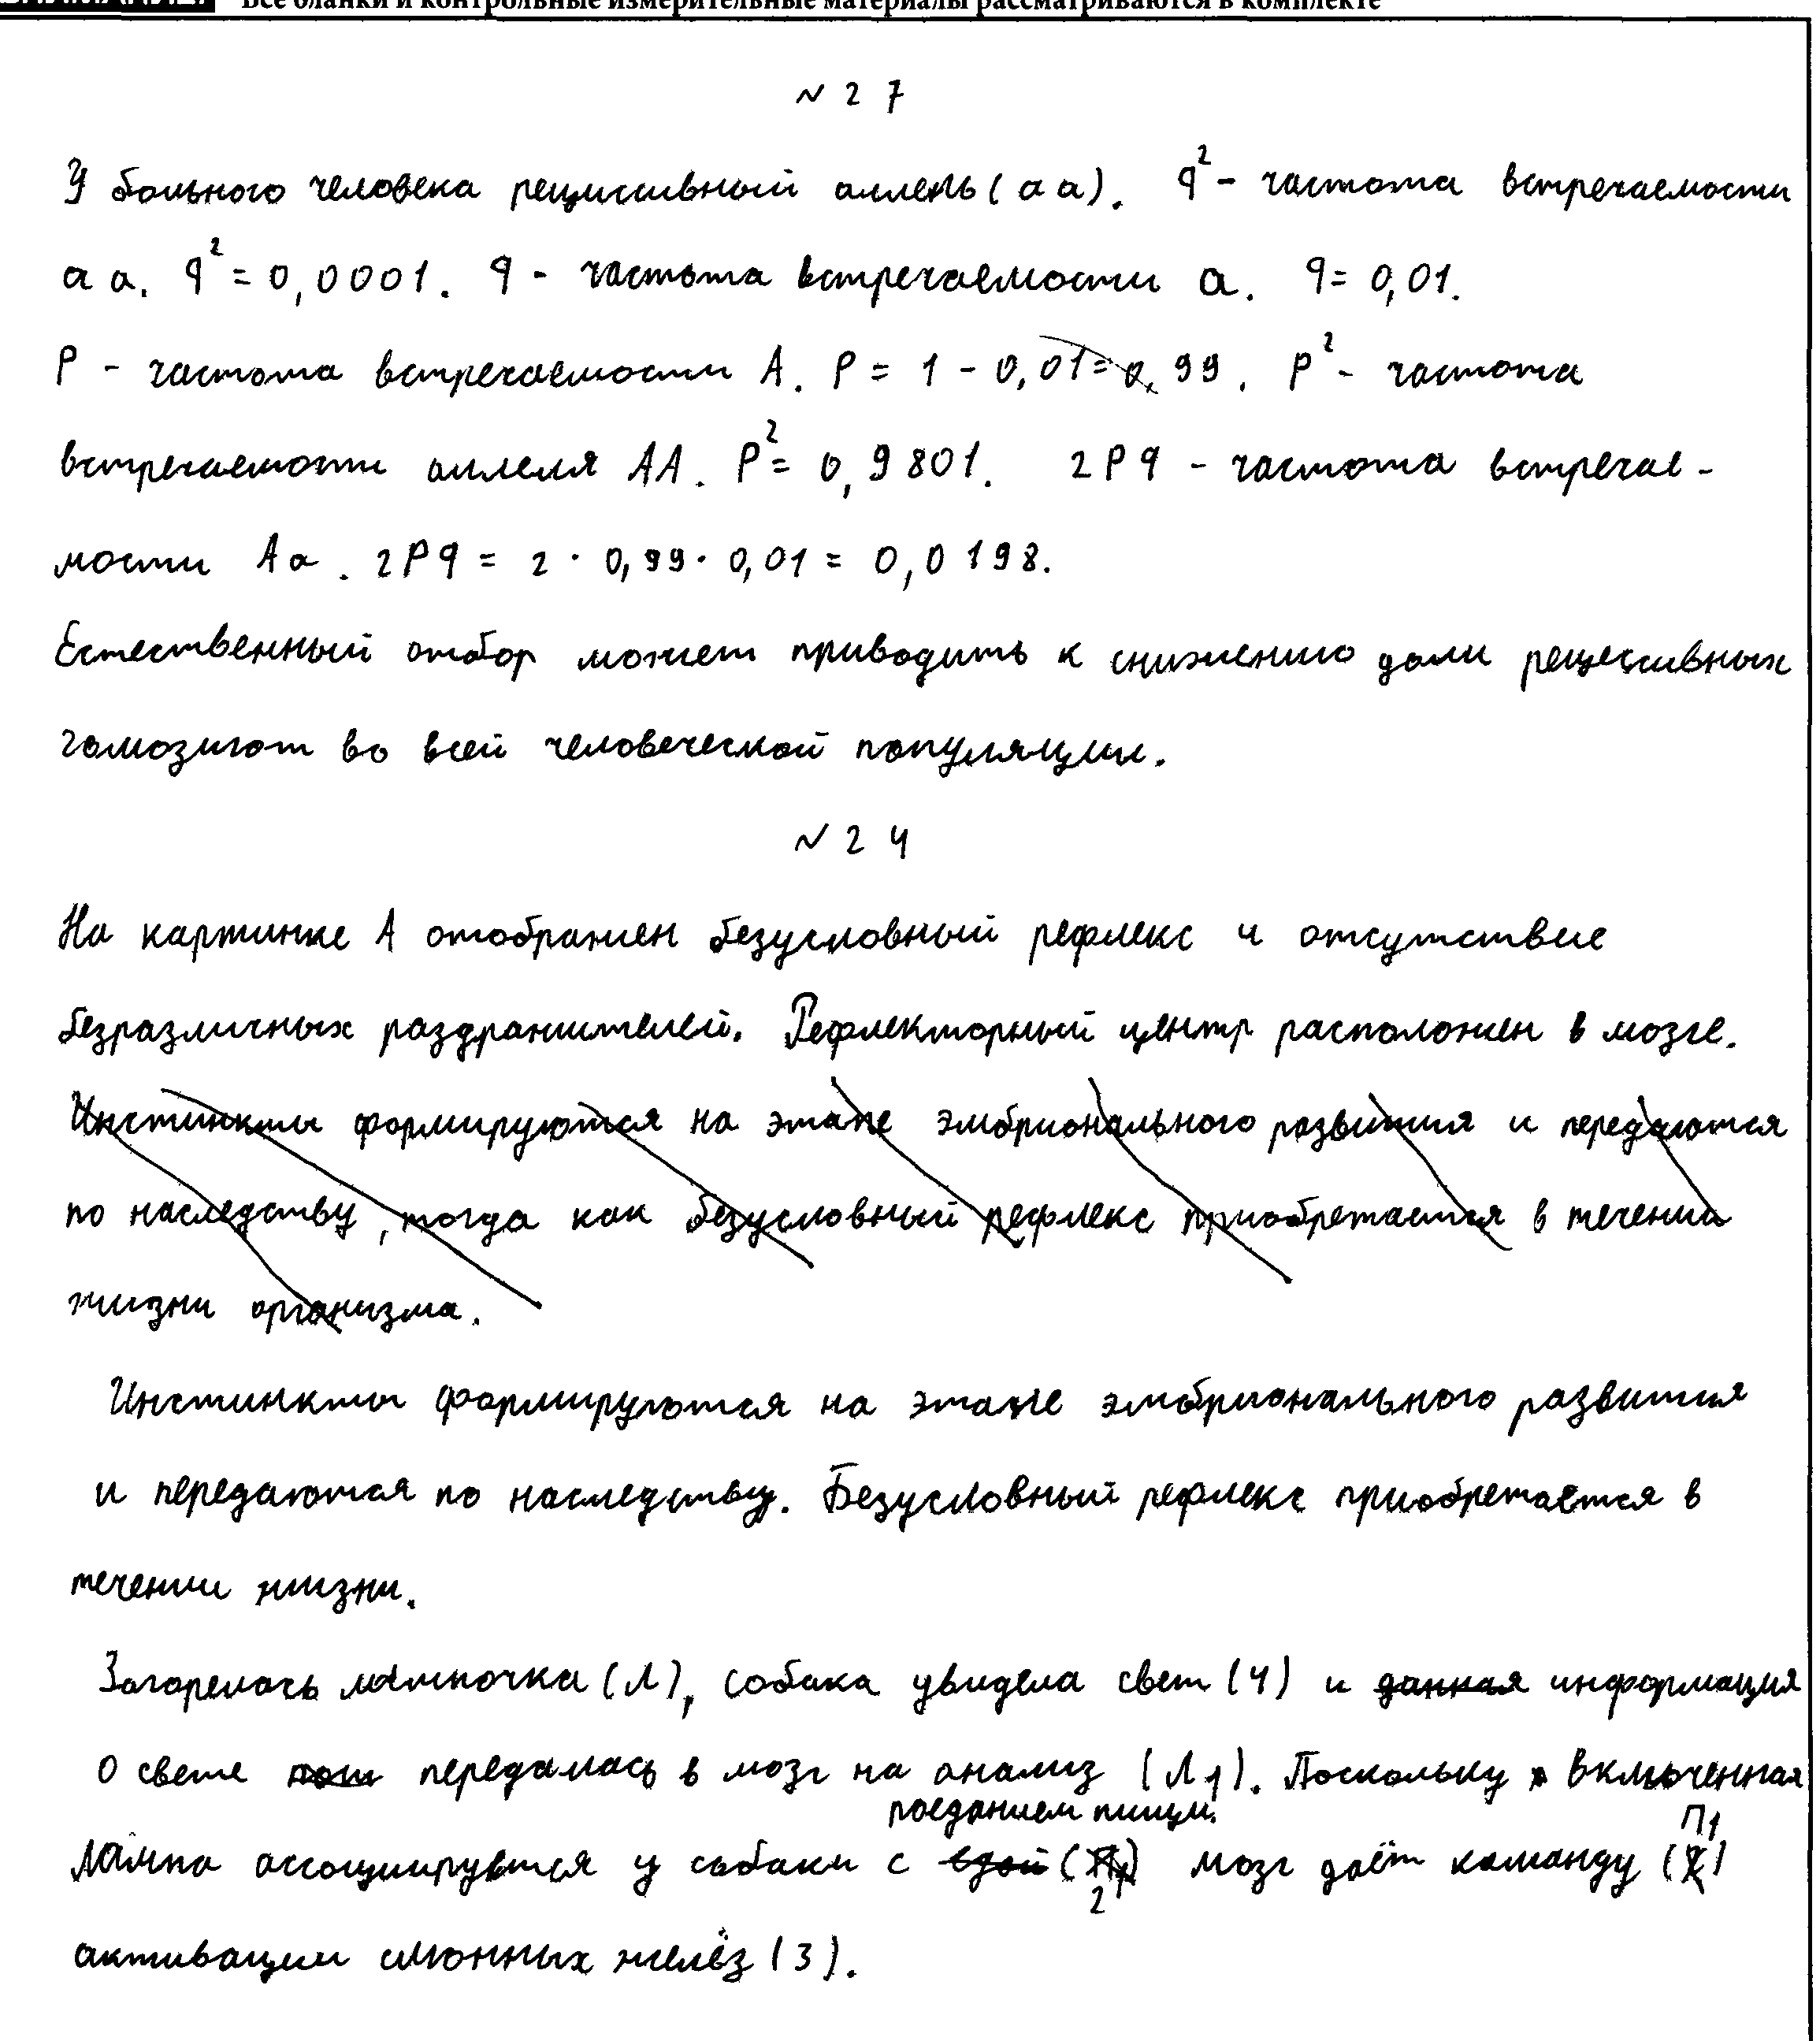 Все бланки и контрольные измерительные материалы рассматриваются в комплекте
№ 27
У больного человека рецисивный аллель (аа). q² - частота встречаемости
аа. q² = 0,0001. q - частота встречаемости а. q = 0,01.
P - частота встречаемости А. P = 1 - 0,01 = 0,99. P² - частота
встречаемости аллеля АА. P² = 0,9801. 2Pq - частота встречае-
мости Аа. 2Pq = 2 · 0,99 · 0,01 = 0,0198.
Естественный отбор может приводить к снижению доли рецессивных
гомозигот во всей человеческой популяции.
№ 24
На картинке А отображен безусловный рефлекс и отсутствие
безразличных раздражителей. Рефлекторный центр расположен в мозге.
Инстинкты формируются на этапе эмбрионального развития и передаются
по наследству, тогда как безусловный рефлекс приобретается в течении
жизни организма.
Инстинкты формируются на этапе эмбрионального развития
и передаются по наследству. Безусловный рефлекс приобретается в
течении жизни.
Загорелась лампочка (Л), собака увидела свет (4) и данная информация
о свете передалась в мозг на анализ (Л1). Поскольку включенная
поеданием пищи. П1
лампа ассоциируется у собаки с едой (2) мозг даёт команду ( )
активации слюнных желёз (3).